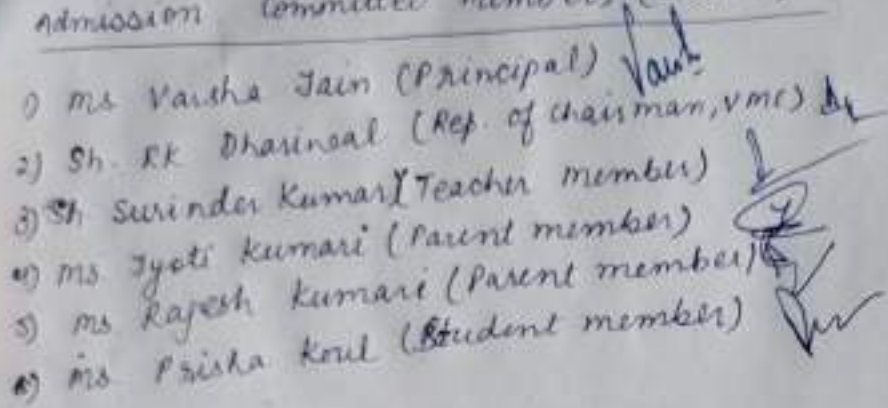 Admission Committee Members
1) Ms Varsha Jain (Principal)
2) Sh. RK Dharinsal (Rep. of chairman, VMC)
3) Sh Surinder Kumar (Teacher member)
4) Ms Jyoti Kumari (Parent member)
5) Ms Rajesh Kumari (Parent member)
6) Ms Prisha Koul (Student member)